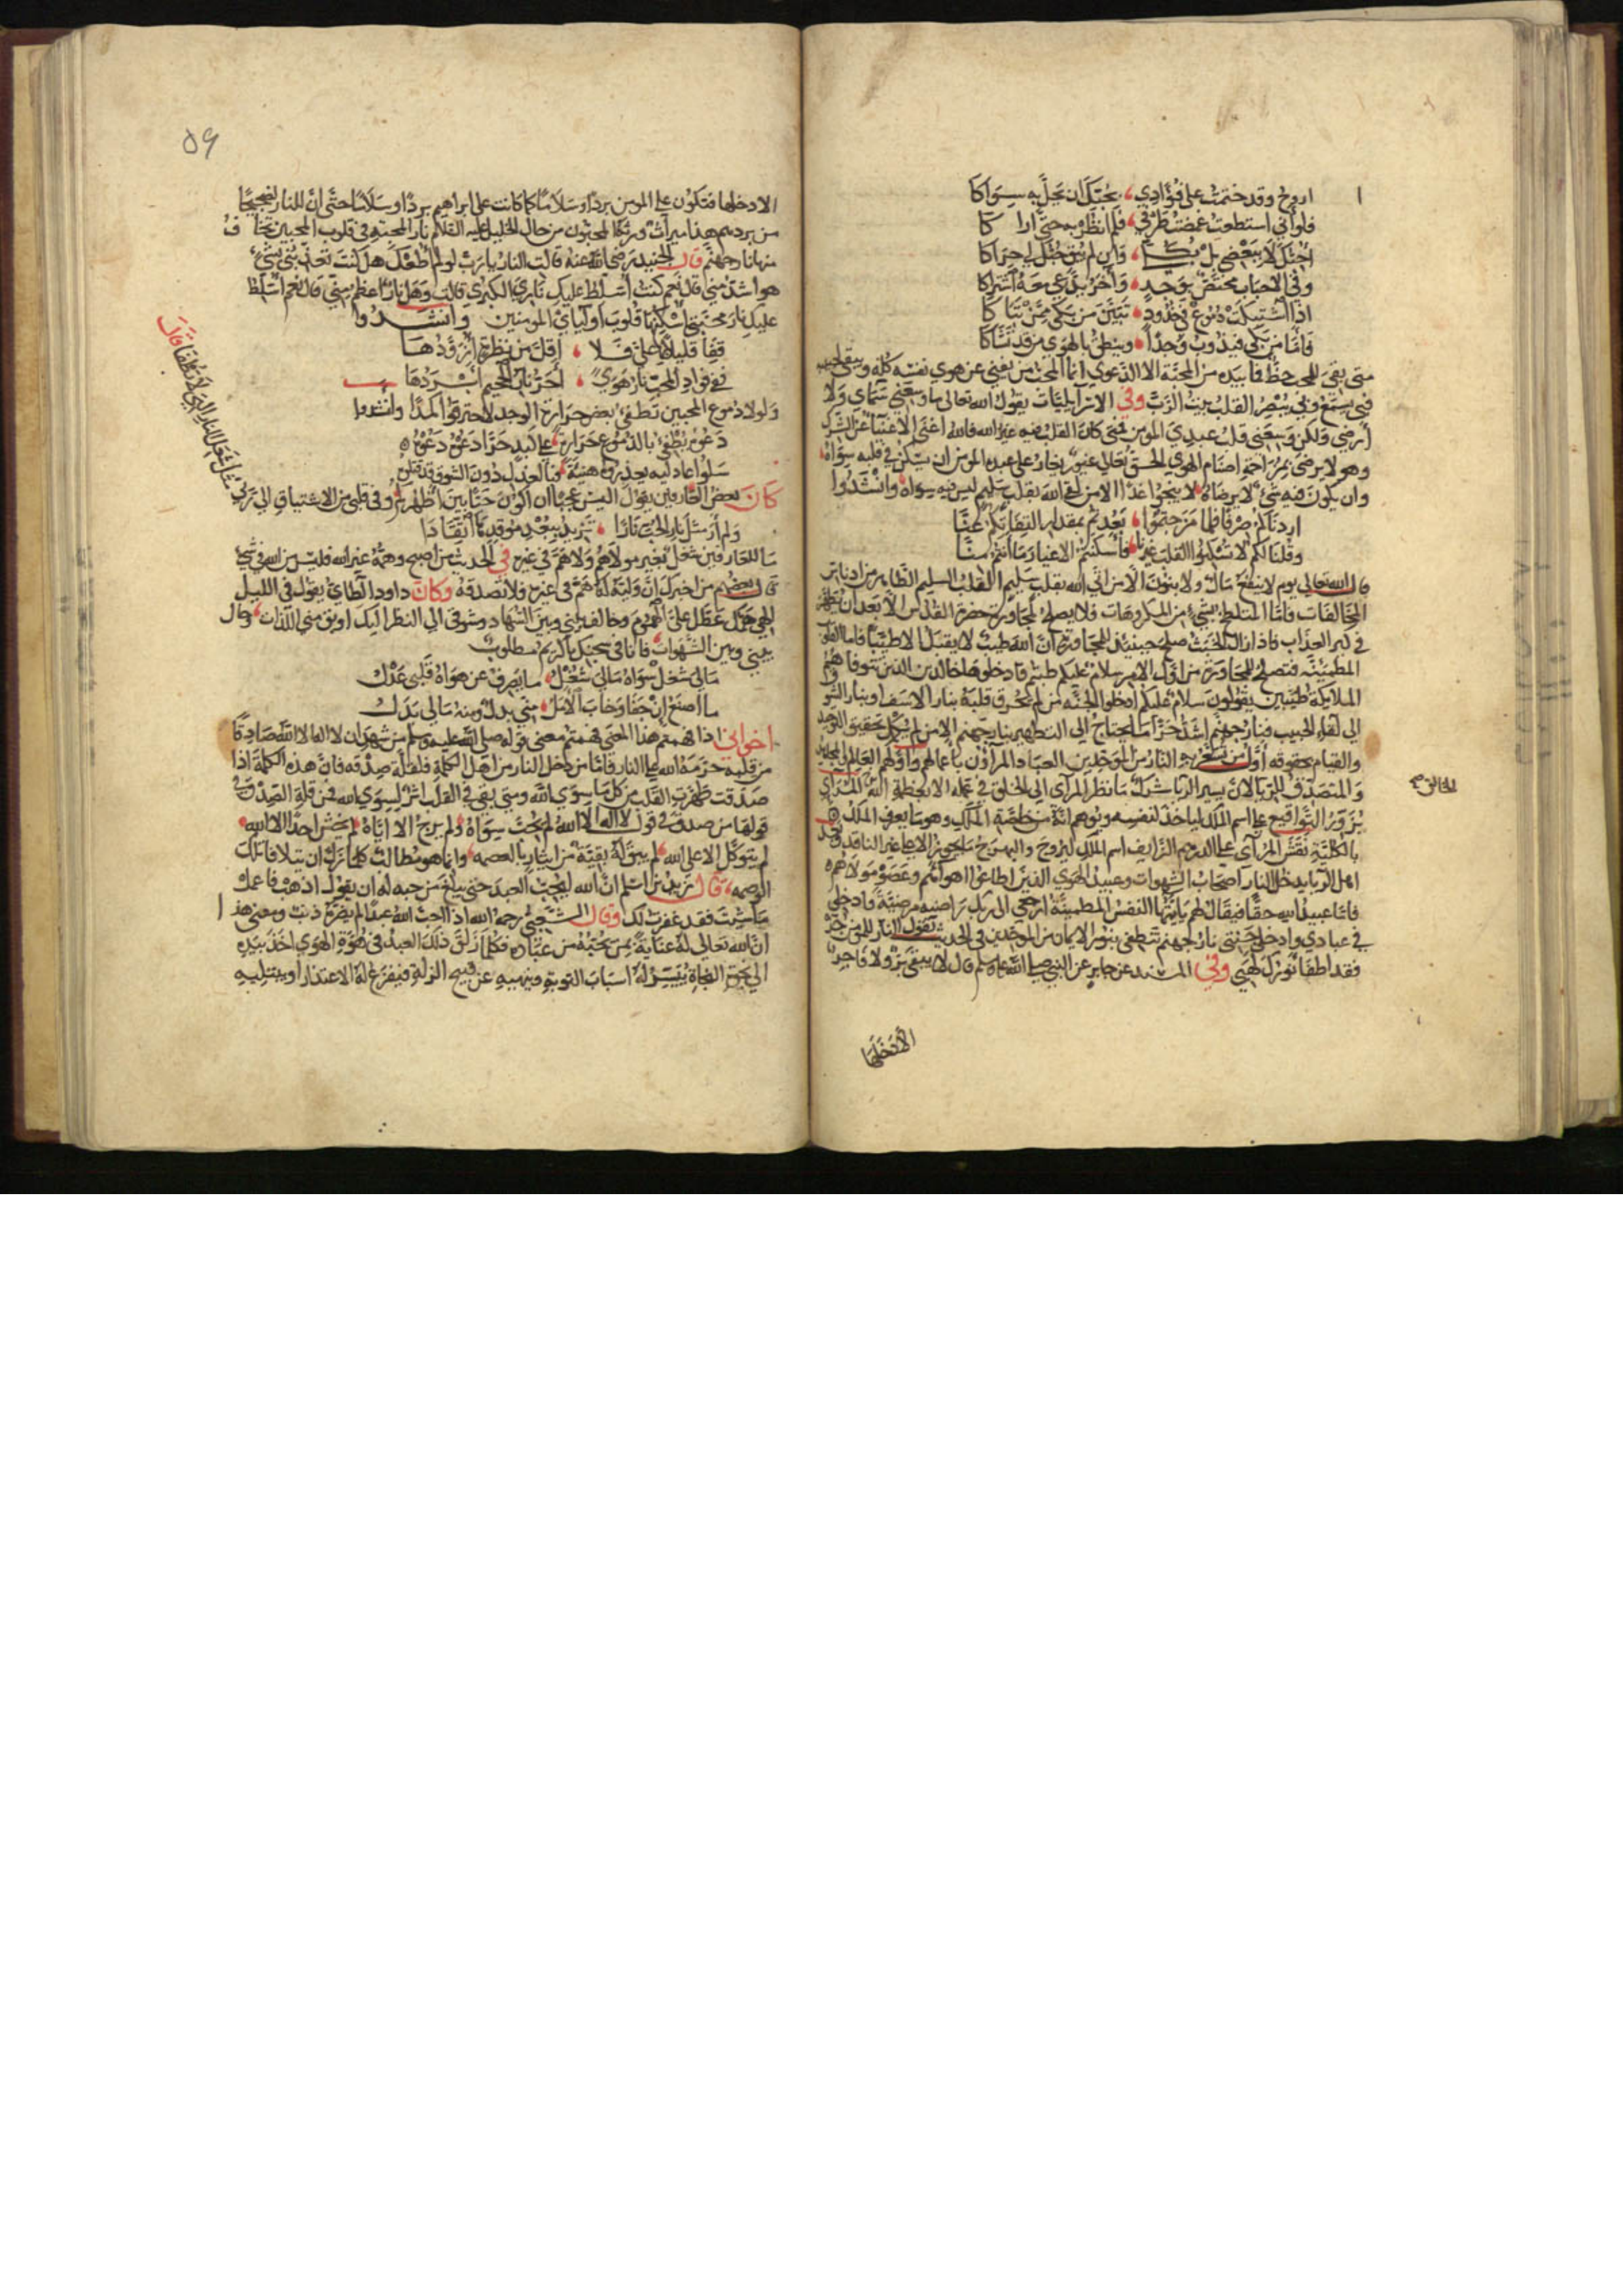 اروح وقد ختمت على فؤادي بحبك ان يحل به سواكا
فلو اني استطعت غضضت طرفي فلم انظر به حتى اراكا
احبك لا ببعضي بل بكلي وان لم يبق حبك لي حراكا
وفي الاحباب مختص بوجد واخر يدعي معه اشتراكا
اذا اشتبكت دموع في خدود تبين من بكى ممن تباكا
فاما من بكى فيذوب وجدا وينطق بالهوى من قد تشاكا
متى بقي للمحب حظ فما بيده من المحبة الا الدعوى انما المحب من يفنى عن هوى نفسه كله ويبقى بحبيبه
فبي يسمع وبي يبصر القلب بيت الرب وفي الاسرائيليات يقول الله تعالى ما وسعني سماي ولا
أرضي ولكن وسعني قلب عبدي المومن فمتى كان القلب فيه غير الله فالله أغنى الاغنيا عن الشرك
وهو لا يرضى بمزاحمة اصنام الهوى الحق تعالى غيور يغار على عبده المومن ان يسكن في قلبه سواه
وان يكون فيه شي لا يرضاه لا ينجوا غدا الا من لقي الله بقلب سليم ليس فيه سواه وانشدوا
اردناكم صرفا فلما مزجتموا بعدتم بمقدار التفاتكم عنا
وقلنا لكم لا تسكنوا القلب غيرنا فاسكنتم الاغيار ما انتم منا
قال الله تعالى يوم لا ينفع مال ولا بنون الا من اتى الله بقلب سليم القلب السليم الطاهر من ادناس
المخالفات فاما المتلطخ بشي من المكروهات فلا يصلح لمجاورة حضرة القدس الا بعد ان يطهر
في كير العذاب فاذا زال الخبث صلح حينيذ للمجاورة ان الله طيب لا يقبل الا طيبا فاما القلوب
المطمينه فتصلح للمجاورة من اول الامر سلام عليكم طبتم فادخلوها خالدين الذين تتوفاهم
الملايكة طيبين يقولون سلام عليكم ادخلوا الجنه من لم يحرق قلبه بنار الاسف او بنار الشوق
الى لقاء الحبيب فنار جهنم اشد حرا ما يحتاج الى التطهير بنار جهنم الا من لم يكمل تحقيق التوحيد
والقيام بحقوقه أول من تسعر به النار من الموحدين العباد المراؤن باعمالهم واولهم العالم والمجاهد
والمتصدق للريا لان يسير الريا شرك ما نظر المرائي الى الخلق في عمله الا لجهله بعظمة الخالق المرائي
يزور التواقيع على اسم الملك لياخذ لنفسه ويوهم انه من خاصة الملك وهو ما يعرف الملك
بالكلية نقش المرائي على الدرهم الزايف اسم الملك ليروج والبهرج ما يجوز الا على غير الناقد وبعد
اهل الريا يدخل النار اصحاب الشهوات وعبيد الهوى الذين اطاعوا اهواهم وعصوا مولاهم
فاما عبيد الله حقا فيقال لهم يا ايتها النفس المطمينة ارجعي الى ربك راضية مرضية فادخلي
في عبادي وادخلي جنتي نار جهنم تنطفي بنور الايمان من الموحدين في الحديث تقول النار للمومن جز
فقد اطفا نورك لهبي وفي المسند عن جابر عن النبي صلى الله عليه وسلم قال لا يبقى بر ولا فاجر
الا دخلها
الخالق صح
59
الا دخلها فتكون على المومن بردا وسلاما كما كانت على ابراهيم بردا وسلاما حتى ان للنار لضجيجا
من بردهم هذا ميراث ورثه المحبون من حال الخليل عليه السلام نار المحبة في قلوب المحبين تخاف
منها نار جهنم قال الجنيد رضي الله عنه قالت النار يا رب لو لم اطعك هل كنت تعذبني بشي
هو اشد مني قال نعم كنت اسلط عليك ناري الكبرى قالت وهل نار اعظم مني قال نعم اسلط
عليك نار محبتي اسكنتها قلوب اوليائي المومنين وانشدوا
قفا قليلا بها علي فلا اقل من نظرة ازودها
ففي فواد المحب نار هوى احر نار الجحيم ابردها
ولولا دموع المحبين تطفي بعض حرارة الوجد لاحترقوا كمدا وانشدوا
دعوه يطفي بالدموع حرارة على كبد حرا دعوه دعوه
سلوا عاذليه يعذروه هنية فبالعذل دون الشوق قد قتلوه
كان بعض العارفين يقول اليس عجبا ان اكون حيا بين اظهركم وفي قلبي من الاشتياق الى ربي
مثل شعل النار التي لا تطفا قال
ولم أر مثل نار الحب نارا تزيد ببعد موقدها اتقادا
ما للعارفين شغل بغير مولاهم ولا هم في غيره في الحديث من اصبح وهمه غير الله فليس من الله في شي
قال بعضهم من اخبرك ان وليه له هم في غيره فلا تصدقه وكان داود الطاي يقول في الليل
الهي همك عطل علي الهموم وحالف بيني وبين السهاد وشوقي الى النظر اليك اوبق مني اللذات وحال
بيني وبين الشهوات فانا في سجنك يا كريم مطلوب
مالي شغل سواه مالي شغل ما يصرف عن هواه قلبي عذل
ما اصنع ان جفا وخاب الامل مني بدل ومنه مالي بدل
اخواني اذا فهمتم هذا المعنى فهمتم معنى قوله صلى الله عليه وسلم من شهد ان لا اله الا الله صادقا
من قلبه حرمه الله على النار فاما من دخل النار من اهل الكلمة فلقلة صدقه فان هذه الكلمة اذا
صدقت طهرت القلب من كل ما سوى الله ومتى بقي في القلب اثر لسوى الله فمن قلة الصدق في
قولها من صدق في قول لا اله الا الله لم يحب سواه ولم يرج الا اياه لم يخش احدا الا الله
لم يتوكل الا على الله لم يبق له بقية من ايثار
الوصمه قال زيد بن اسلم ان الله ليحب العبد حتى يبلغ من حبه له ان يقول اذهب فاعمل
ما شيت فقد غفرت لك وقال الشعبي رحمه الله اذا احب الله عبدا لم يضره ذنب ومعنى هذا
ان الله تعالى له عناية بمن يحبه من عباده فكلما زلق ذلك العبد في هوة الهوى اخذ بيده
الى نجوة النجاة ييسر له اسباب التوبة وينبهه عن قبيح الزلة فيفزع له الاعتذار او يبتليه